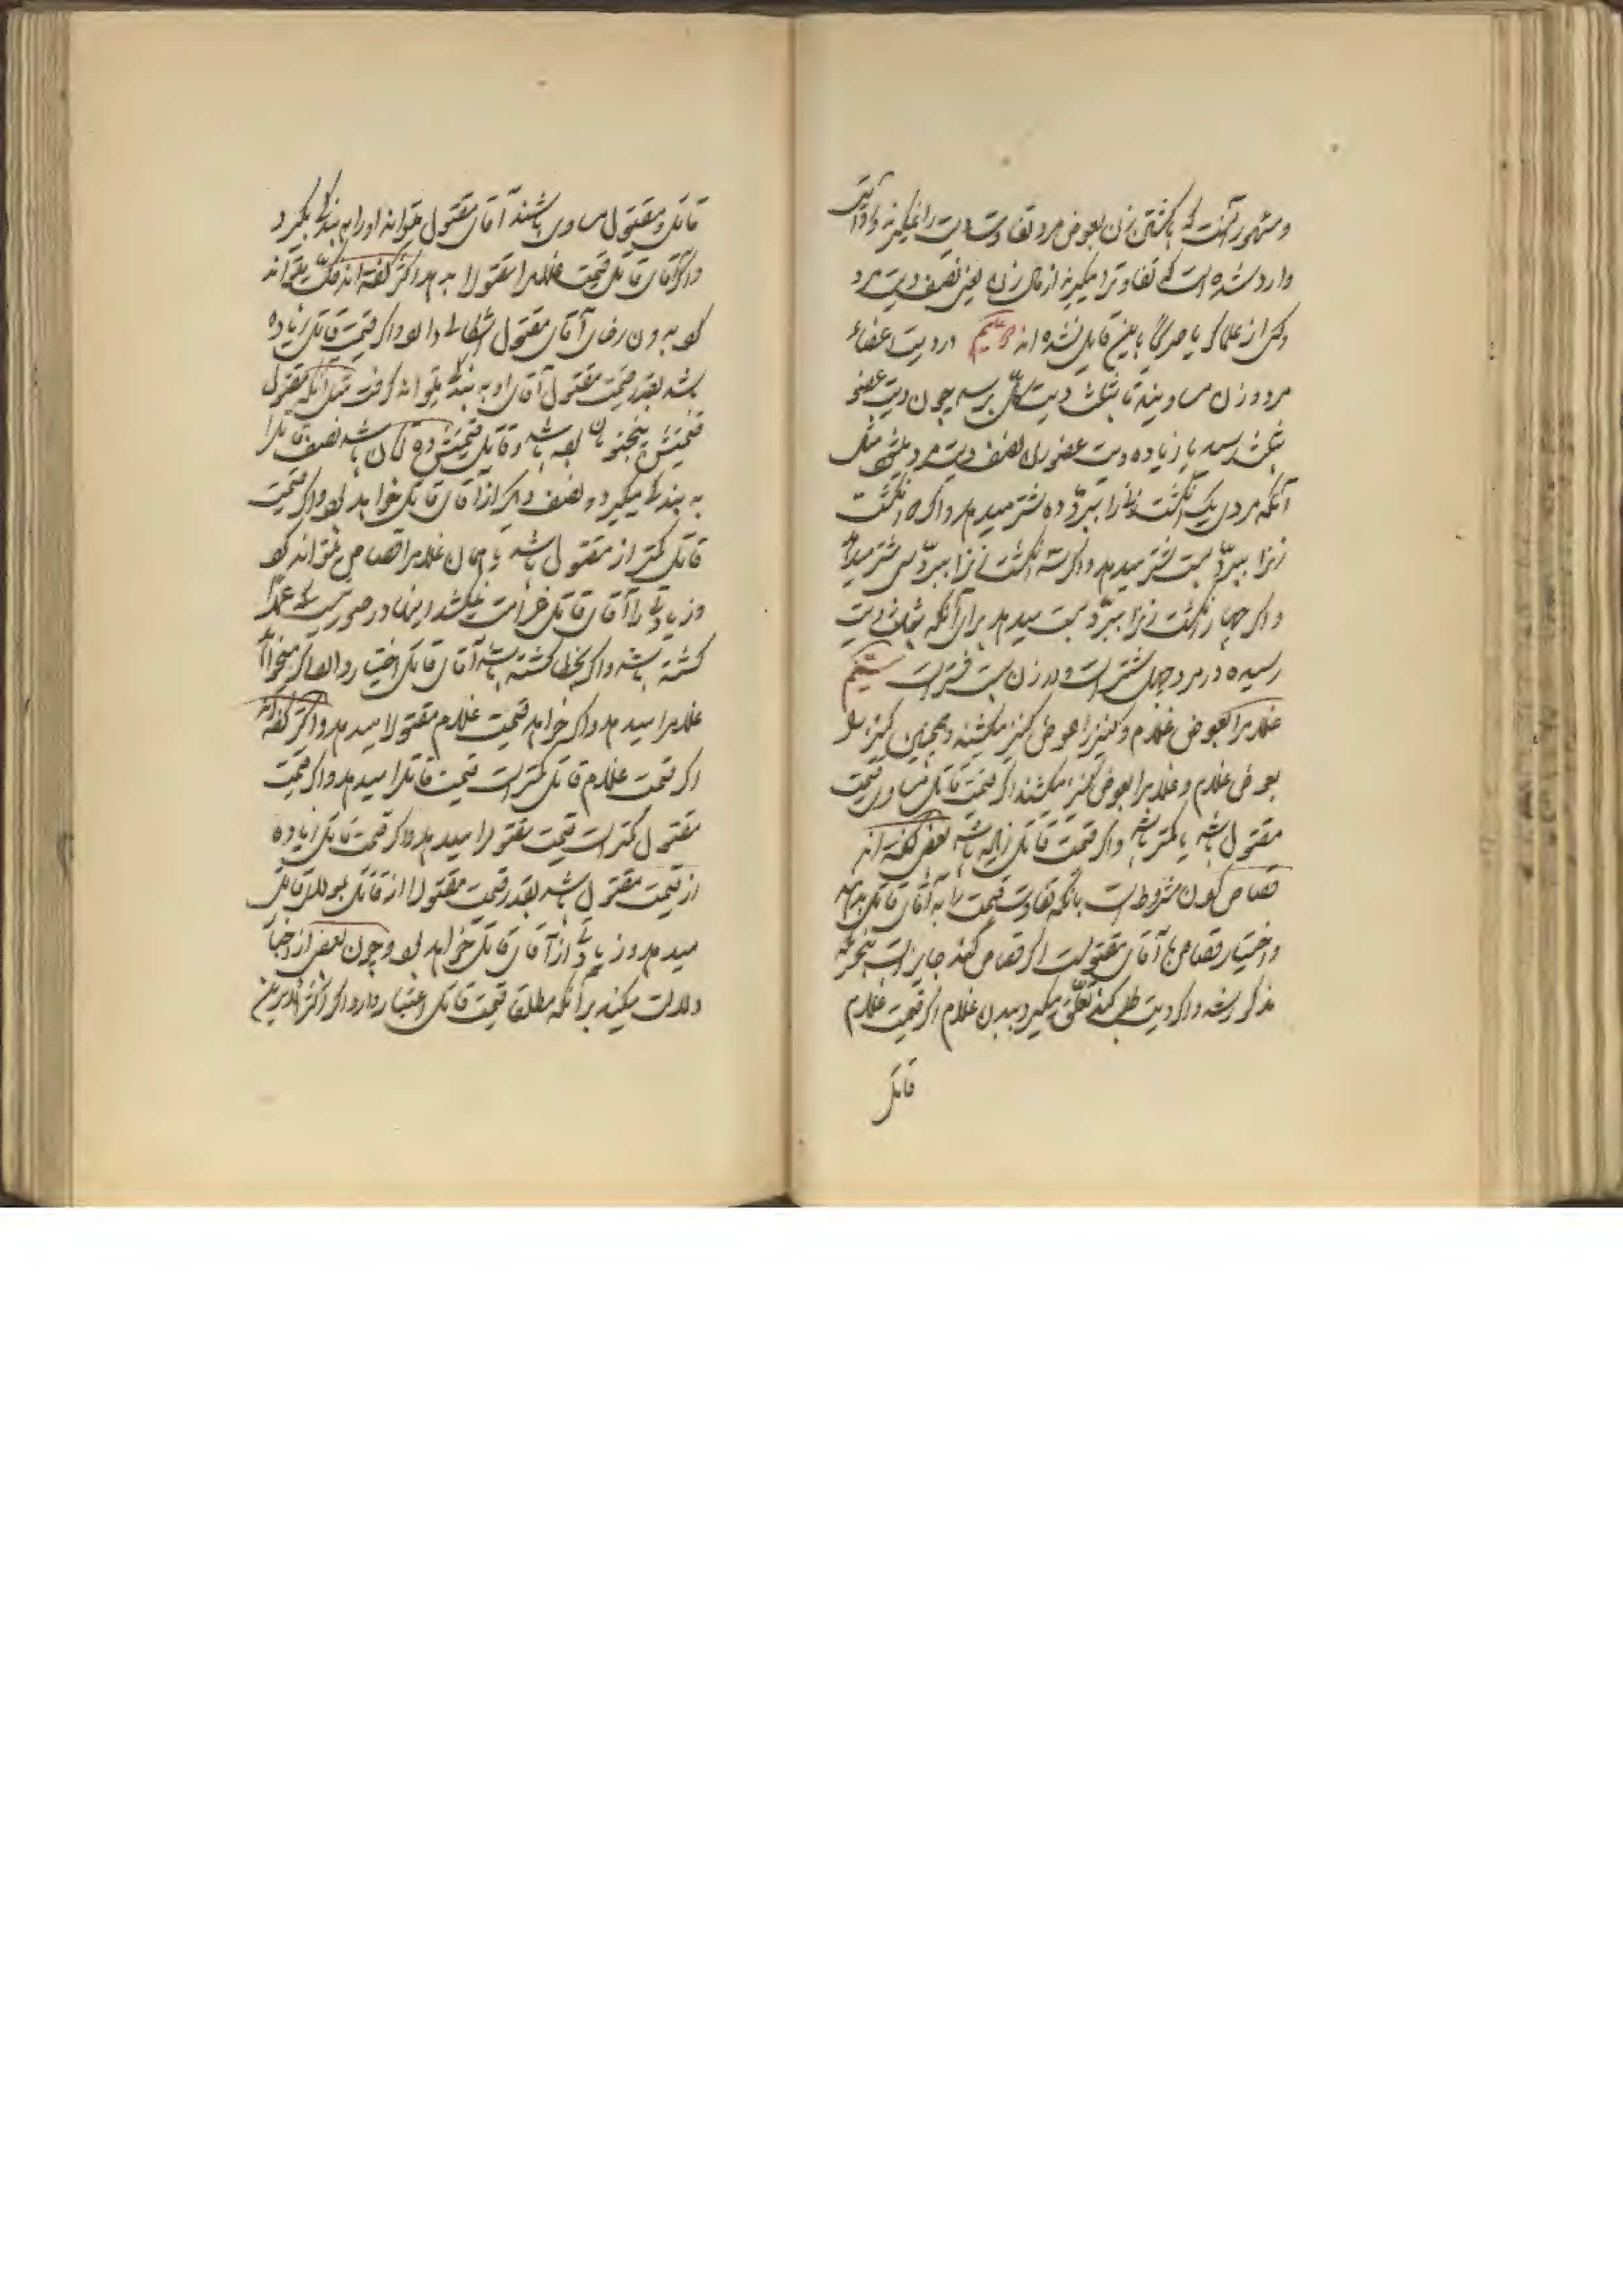 و مشهور آنست که با کشتن زن بعوض مرد تفاوت دیت را نمیگیرند و روایتی
وارد شده است که تفاوت را میگیرند از مال زن یعنی نصف دیت مرد
و کسی از علما باین قایل نشده اند در دیت اعضاء
مرد و زن مساویند تا بثلث دیت کل برسد چون دیت عضو
بثلث رسید یا زیاده دیت عضو زن نصف دیت مرد میشود مثل
آنکه مردی یک انگشت زنی را ببرد ده شتر میدهد و اگر دو انگشت
زنرا ببرد بیست شتر میدهد و اگر سه انگشت زنرا ببرد سی شتر میدهد
و اگر چهار انگشت زنرا ببرد بیست میدهد برای آنکه بثلث دیت
رسیده در مرد چهل شتر است و در زن بیست شتر است
غلام را بعوض غلام و کنیز را بعوض کنیز میکشند و همچنین کنیز را
بعوض غلام و غلام را بعوض کنیز میکشند اگر قیمت قاتل مساوی قیمت
مقتول باشد یا کمتر باشد و اگر قیمت قاتل زیاده باشد بعضی گفته اند
قصاص کردن مشروط است بآنکه تفاوت قیمت را به آقای قاتل بدهد
و اختیار قصاص با آقای مقتولست اگر قصاص کند جایز است بنحوی که
مذکور شد و اگر دیت طلب کند تعلق میگیرد ببدن غلام اگر قیمت غلام
قاتل
قاتل و مقتول مساوی باشند آقای مقتول میتواند او را به بندگی بگیرد
و اگر آقای قاتل قیمت غلام مقتول را بدهد اکثر گفته اند میتواند
کرد بدون رضای آقای مقتول اشکالی دارد و اگر قیمت قاتل زیاده
باشد بقدر قیمت مقتول آقای او به بندگی میتواند گرفت مثل آنکه مقتول
قیمتش پنجتومان بوده باشد و قاتل قیمتش ده تومان باشد نصف قاتل را
به بندگی میگیرد و نصف دیگر از آقای قاتل خواهد بود و اگر قیمت
قاتل کمتر از مقتول باشد همان غلام را قصاص میتواند کرد
و زیادتی را آقای قاتل غرامت نمیکشد اینها در صورتیست که عمداً
کشته باشد و اگر بخطا کشته باشد آقای قاتل اختیار دارد اگر میخواهد
غلام را میدهد و اگر خواهد قیمت غلام مقتول را میدهد و اکثر گفته اند
اگر قیمت غلام قاتل کمتر است قیمت قاتل را میدهد و اگر قیمت
مقتول کمتر است قیمت مقتول را میدهد و اگر قیمت قاتل زیاده
از قیمت مقتول باشد بقدر قیمت مقتول از قاتل
میدهد و زیادتی از آقای قاتل خواهد بود و چون بعضی از اخبار
دلالت میکند بر آنکه مطلقا قیمت قاتل اعتبار دارد